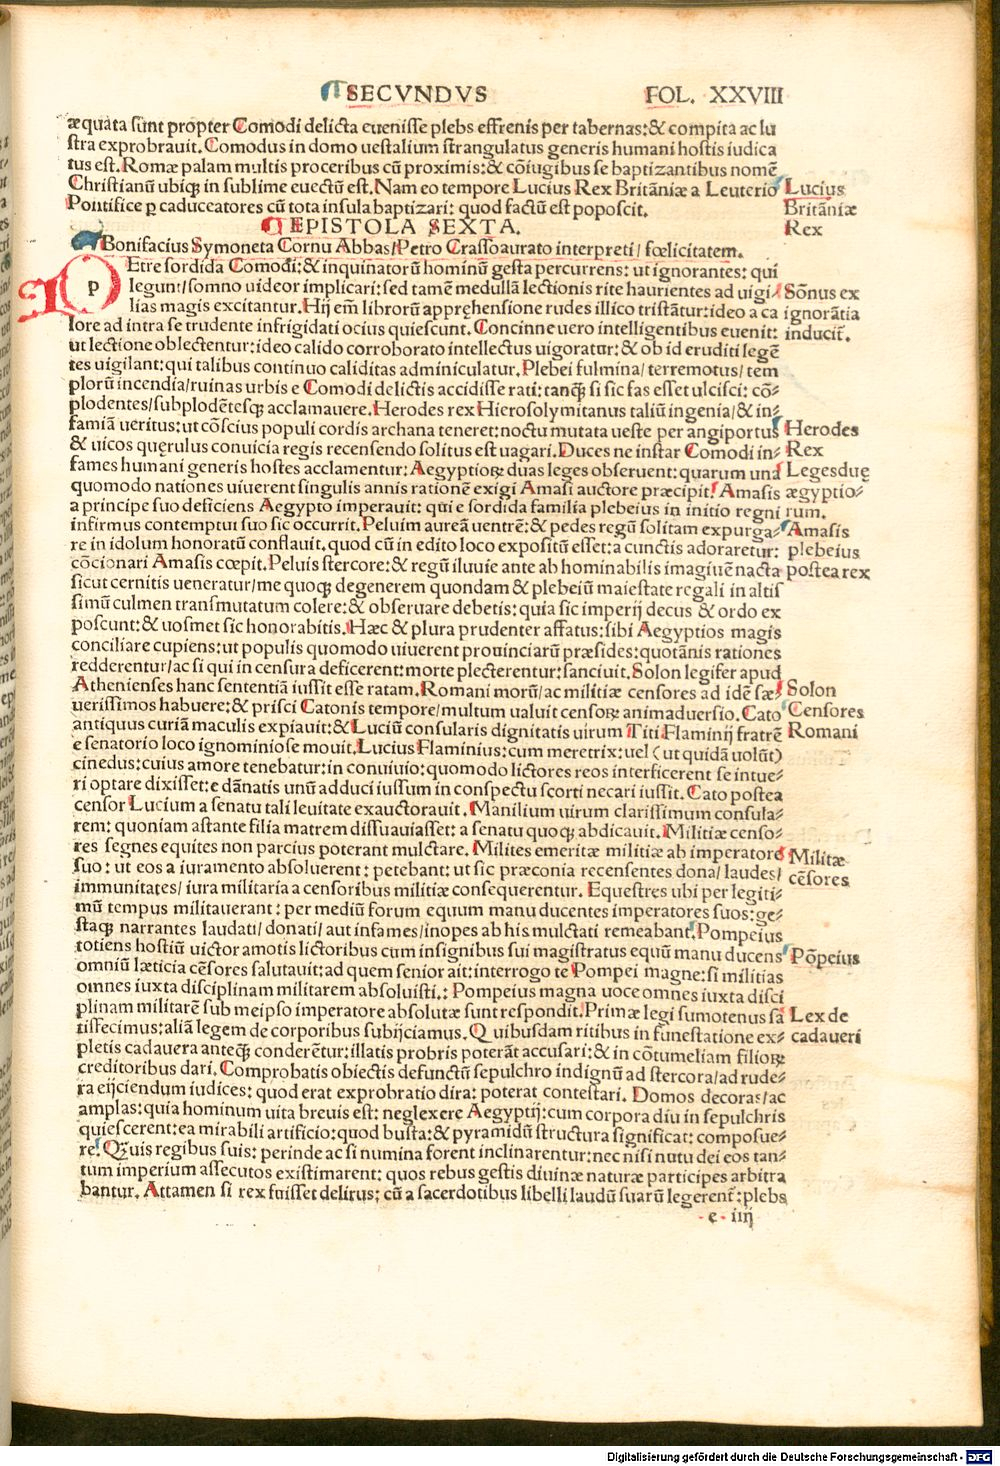 SECVNDVS FOL. XXVIII
æquata sunt propter Comodi delicta euenisse plebs effrenis per tabernas:& compita ac lu
stra exprobrauit. Comodus in domo uestalium strangulatus generis humani hostis iudica
tus est. Romæ palam multis proceribus cū proximis:& cōiugibus se baptizantibus nomē
Christianū ubiqꝫ in sublime euectū est. Nam eo tempore Lucius Rex Britāniæ a Leuterio
Pontifice p̱ caduceatores cū tota insula baptizari: quod factū est poposcit.
Lucius
Britāniæ
Rex
EPISTOLA SEXTA.
Bonifacius Symoneta Cornu Abbas/Petro Crasso aurato interpreti/ fœlicitatem.
p ETre sordida Comodi:& inquinatorū hominū gesta percurrens: ut ignorantes: qui
legunt/somno uideor implicari: sed tamē medullā lectionis rite haurientes ad uigi/
lias magis excitantur. Hij em̄ librorū appręhensione rudes illico tristātur: ideo a ca
lore ad intra se trudente infrigidati ocius quiescunt. Concinne uero intelligentibus euenit:
ut lectione oblectentur: ideo calido corroborato intellectus uigoratur:& ob id eruditi legē
tes uigilant: qui talibus continuo caliditas adminiculatur. Plebei fulmina/ terremotus/ tem
plorū incendia/ruinas urbis e Comodi delictis accidisse rati: tanqꝫ si sic fas esset ulcisci: cō⸗
plodentes/subplodētesqꝫ acclamauere. Herodes rex Hierosolymitanus taliū ingenia/& in⸗
famiā ueritus: ut cōscius populi cordis archana teneret: noctu mutata ueste per angiportus
& uicos quęrulus conuicia regis recensendo solitus est uagari. Duces ne instar Comodi in⸗
fames humani generis hostes acclamentur: Aegyptioꝝ duas leges obseruent: quarum una
quomodo nationes uiuerent singulis annis rationē exigi Amasi auctore præcipit. Amasis
a principe suo deficiens Aegypto imperauit: qui e sordida familia plebeius in initio regni
infirmus contemptui suo sic occurrit. Peluim aureā uentrē:& pedes regū solitam expurga⸗
re in idolum honoratū conflauit. quod cū in edito loco expositū esset: a cunctis adoraretur:
cōcionari Amasis cœpit. Peluis stercore:& regū iluuie ante ab hominabilis imagiuē nacta
sicut cernitis ueneratur/me quoqꝫ degenerem quondam & plebeiū maiestate regali in altis
simū culmen transmutatum colere:& obseruare debetis: quia sic imperij decus & ordo ex
poscunt:& uosmet sic honorabitis. Hæc & plura prudenter affatus: sibi Aegyptios magis
conciliare cupiens: ut populis quomodo uiuerent prouinciarū præsides: quotānis rationes
redderentur/ac si qui in censura deficerent: morte plecterentur: sanciuit. Solon legifer apud
Athenienses hanc sententiā iussit esse ratam. Romani morū/ac militiæ censores ad idē sæ⸗
uerissimos habuere:& prisci Catonis tempore/multum ualuit censoꝝ animaduersio. Cato
antiquus curiā maculis expiauit:& Luciū consularis dignitatis uirum Titi Flaminij fratrē
e senatorio loco ignominiose mouit. Lucius Flaminius: cum meretrix: uel (ut quidā uolūt)
cinedus: cuius amore tenebatur: in conuiuio: quomodo lictores reos interficerent se intue⸗
ri optare dixisset: e dānatis unū adduci iussum in conspectu scorti necari iussit. Cato postea
censor Lucium a senatu tali leuitate exauctorauit. Manilium uirum clarissimum consula⸗
rem: quoniam astante filia matrem dissuauiasset: a senatu quoqꝫ abdicauit. Militiæ censo⸗
res segnes equites non parcius poterant mulctare. Milites emeritæ militiæ ab imperatore
suo: ut eos a iuramento absoluerent: petebant: ut sic præconia recensentes dona/ laudes/
immunitates/ iura militaria a censoribus militiæ consequerentur. Equestres ubi per legiti⸗
mū tempus militauerant: per mediū forum equum manu ducentes imperatores suos: ge⸗
staqꝫ narrantes laudati/ donati/ aut infames/inopes ab his mulctati remeabant. Pompeius
totiens hostiū uictor amotis lictoribus cum insignibus sui magistratus equū manu ducens
omniū læticia cēsores salutauit: ad quem senior ait: interrogo te Pompei magne: si militias
omnes iuxta disciplinam militarem absoluisti.: Pompeius magna uoce omnes iuxta disci
plinam militarē sub meipso imperatore absolutæ sunt respondit. Primæ legi sumotenus sā
tissecimus: aliā legem de corporibus subijciamus. Quibusdam ritibus in funestatione ex⸗
pletis cadauera anteqꝫ conderētur: illatis probris poterāt accusari:& in cōtumeliam filioꝝ
creditoribus dari. Comprobatis obiectis defunctū sepulchro indignū ad stercora/ad rude⸗
ra eijciendum iudices: quod erat exprobratio dira: poterat contestari. Domos decoras/ac
amplas: quia hominum uita breuis est: neglexere Aegyptij: cum corpora diu in sepulchris
quiescerent: ea mirabili artificio: quod busta:& pyramidū structura significat: composue⸗
re. Qꝫuis regibus suis: perinde ac si numina forent inclinarentur: nec nisi nutu dei eos tan⸗
tum imperium assecutos existimarent: quos rebus gestis diuinæ naturæ participes arbitra
bantur. Attamen si rex fuisset delirus: cū a sacerdotibus libelli laudū suarū legerent̄: plebs
Sōnus ex
ignorātia
inducit̄.
Herodes
Rex
Leges duę
ægyptio⸗
rum.
Amasis
plebeius
postea rex
Solon
Censores
Romani
Militæ
cēsores
Pōpeius
Lex de
cadaueri
e iiij
Digitalisierung gefördert durch die Deutsche Forschungsgemeinschaft - DFG